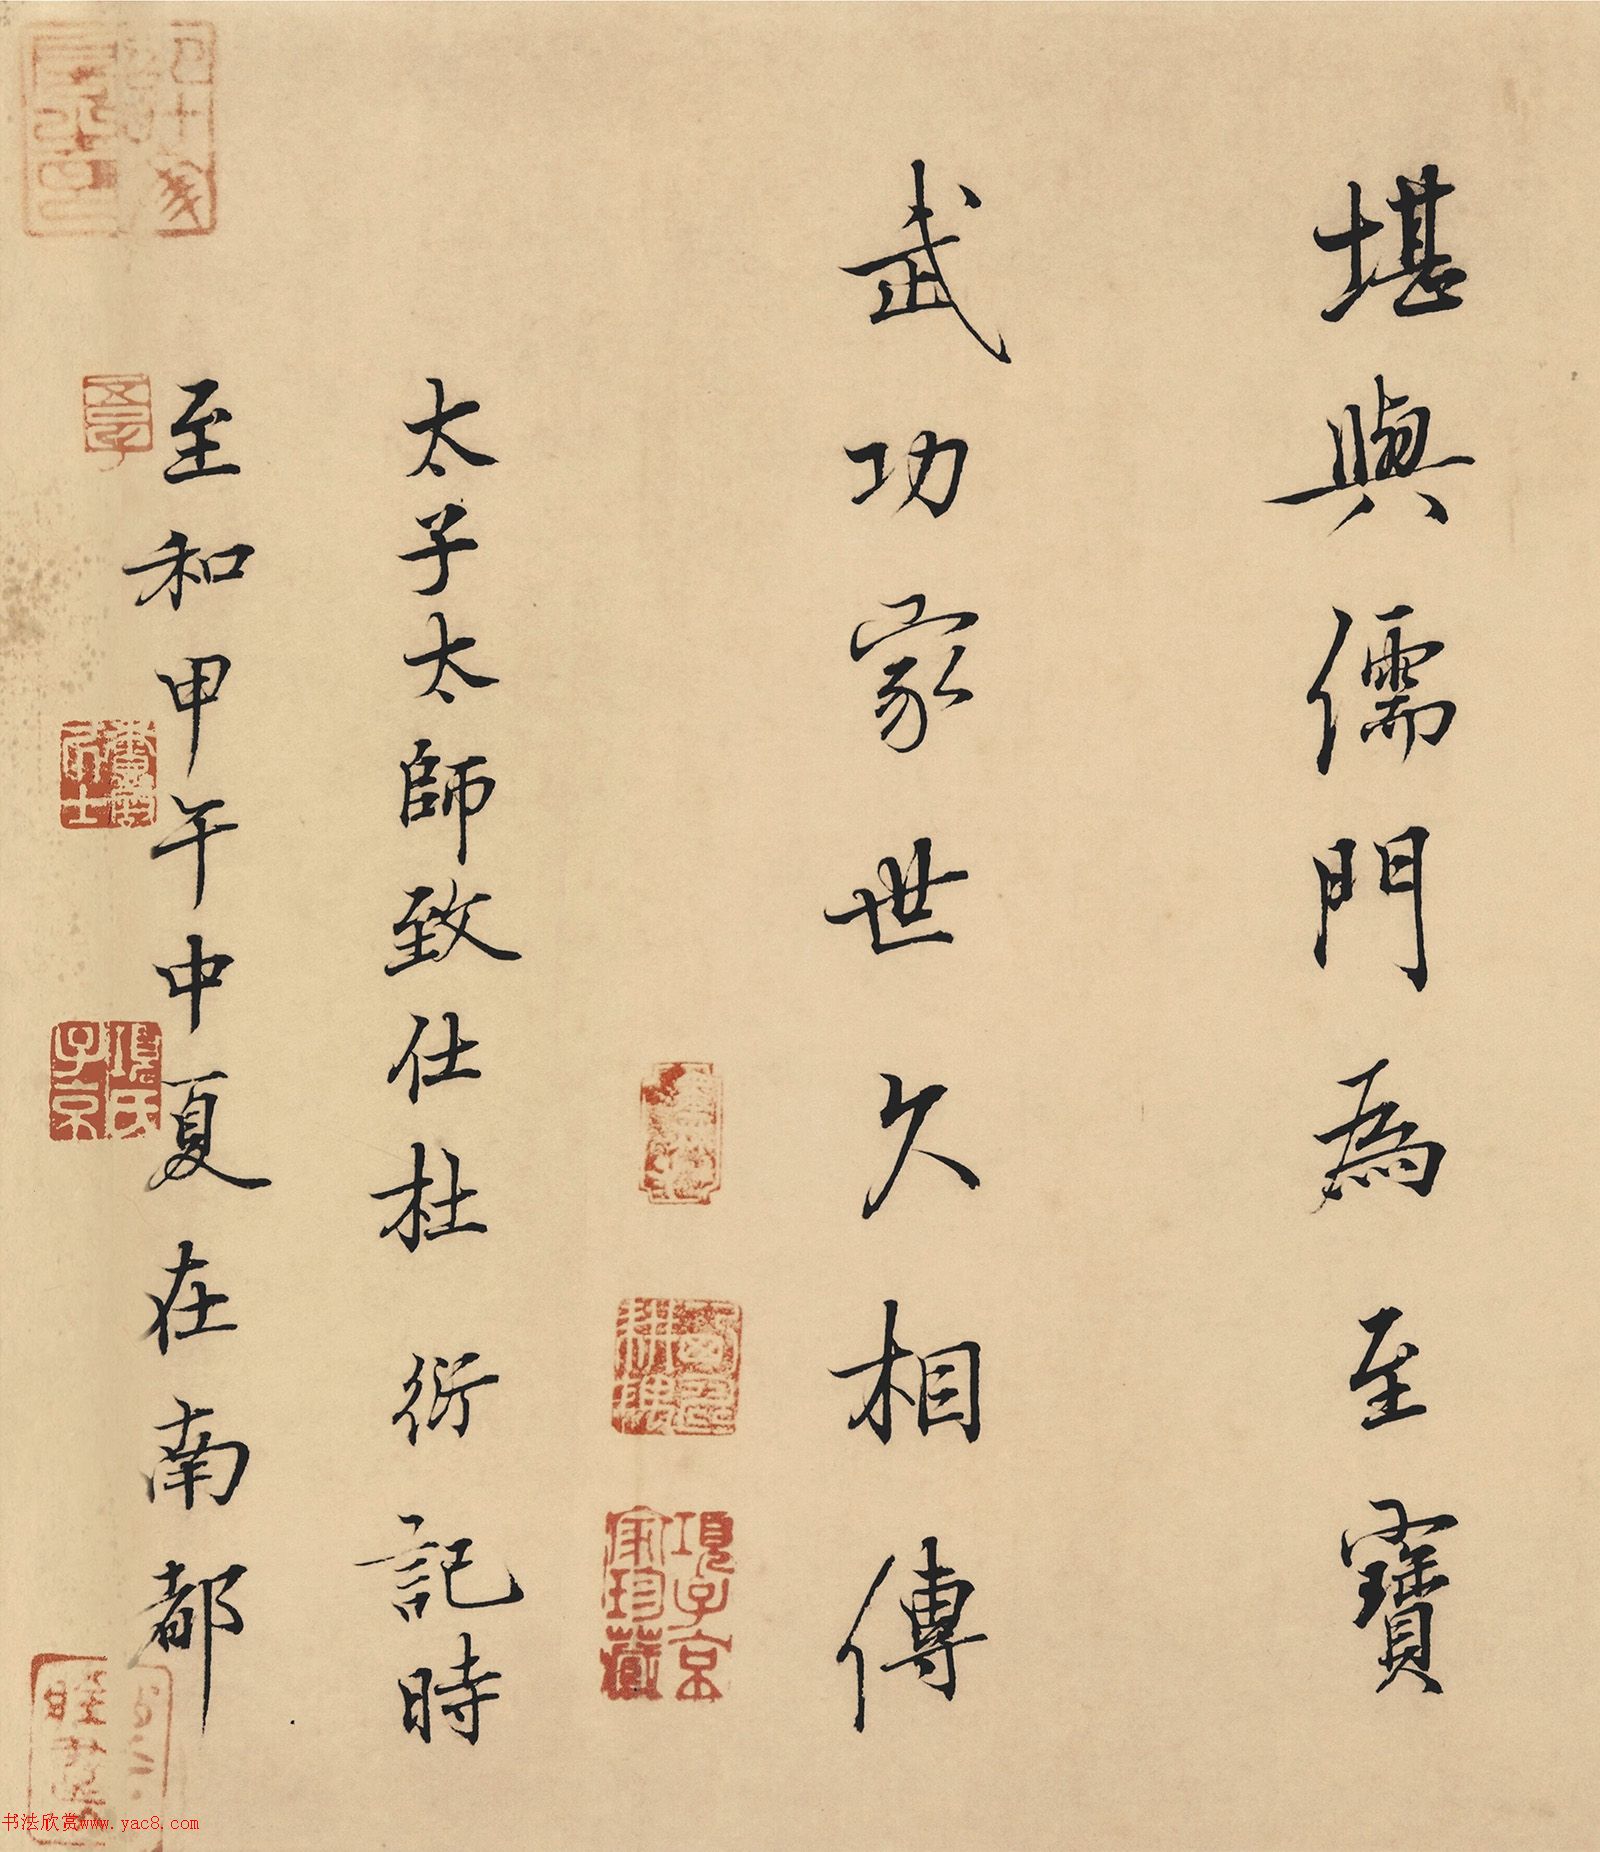 堪與儒門為至寶
武功家世久相傳
太子太師致仕杜衍記時
至和甲午中夏在南都
項子京
家珍藏
項氏
子京
书法欣赏www.yac8.com